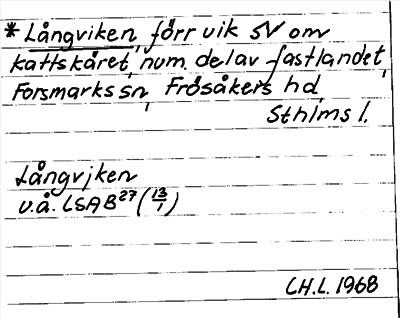 * Långviken, förr vik SV om
kattskåret, num. del av fastlandet,
Forsmarks sn, Frösåkers hd,
Sthlms l.
Långvjken
u.å. LSA B27 (13/1)
CH.L. 1968